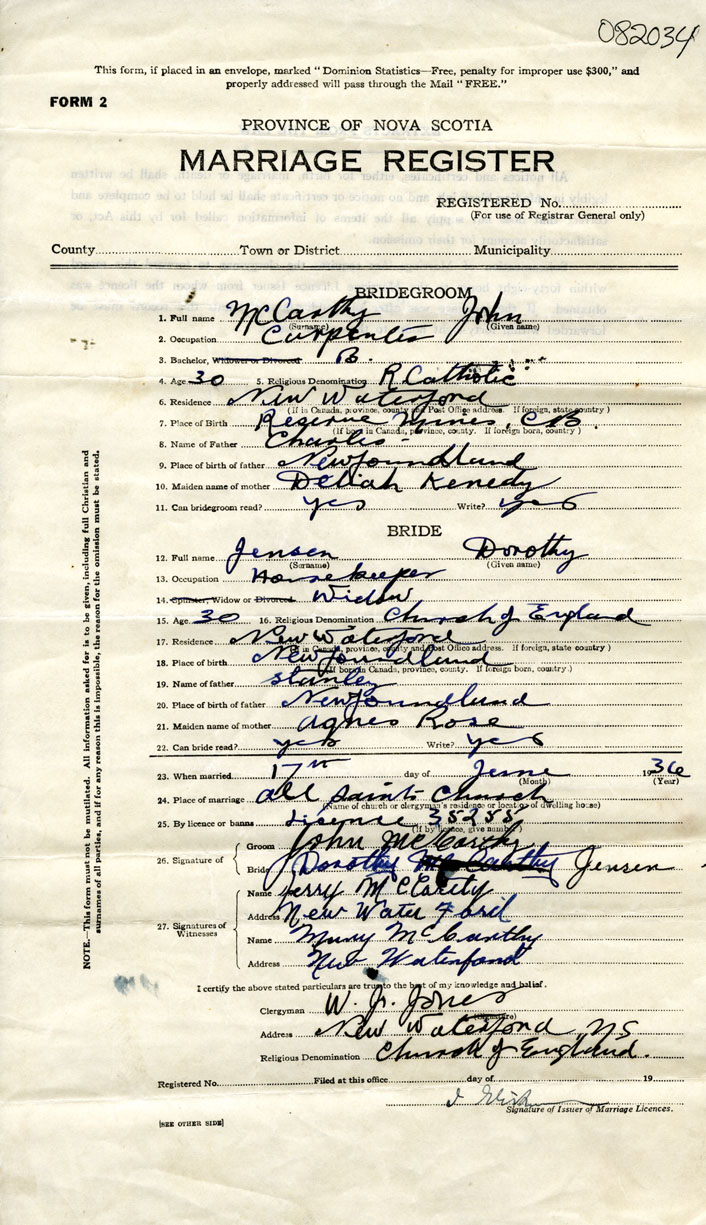 082034
This form, if placed in an envelope, marked "Dominion Statistics—Free, penalty for improper use $300," and
properly addressed will pass through the Mail "FREE."
FORM 2
PROVINCE OF NOVA SCOTIA
MARRIAGE REGISTER
REGISTERED No.
(For use of Registrar General only)
County Town or District Municipality
BRIDEGROOM
1. Full name McCarthy John
(Surname) (Given name)
2. Occupation Carpenter
3. Bachelor, Widower or Divorced B.
4. Age 30 5. Religious Denomination R Catholic
6. Residence New Waterford
(If in Canada, province, county and Post Office address. If foreign, state country)
7. Place of Birth Reserve Mines, C.B.
(If born in Canada, province, county. If foreign born, country)
8. Name of Father Charles
9. Place of birth of father Newfoundland
10. Maiden name of mother Deliah Kenedy
11. Can bridegroom read? yes Write? yes
BRIDE
12. Full name Jensen Dorothy
(Surname) (Given name)
13. Occupation Housekeeper
14. Spinster, Widow or Divorced Widow
15. Age 30 16. Religious Denomination Church of England
17. Residence New Waterford
(If in Canada, province, county and Post Office address. If foreign, state country)
18. Place of birth Newfoundland
(If born in Canada, province, county. If foreign born, country.)
19. Name of father Stanley
20. Place of birth of father Newfoundland
21. Maiden name of mother Agnes Rose
22. Can bride read? yes Write? yes
23. When married 17th day of June 1936
(Month) (Year)
24. Place of marriage All Saints Church
(Name of church or clergyman's residence or location of dwelling house)
25. By licence or banns License 35255
(If by licence, give number)
26. Signature of
Groom John McCarthy
Bride Dorothy McCarthy Jensen
27. Signatures of Witnesses
Name Jerry McCarthy
Address New Water Ford
Name Mary McCarthy
Address New Waterford
I certify the above stated particulars are true to the best of my knowledge and belief.
Clergyman W. J. Jones
(Signature)
Address New Waterford NS
Religious Denomination Church of England.
Registered No. Filed at this office day of 19
Signature of Issuer of Marriage Licences.
[SEE OTHER SIDE]
NOTE.—This form must not be mutilated. All information asked for is to be given, including full Christian and
surnames of all parties, and if for any reason this is impossible, the reason for the omission must be stated.